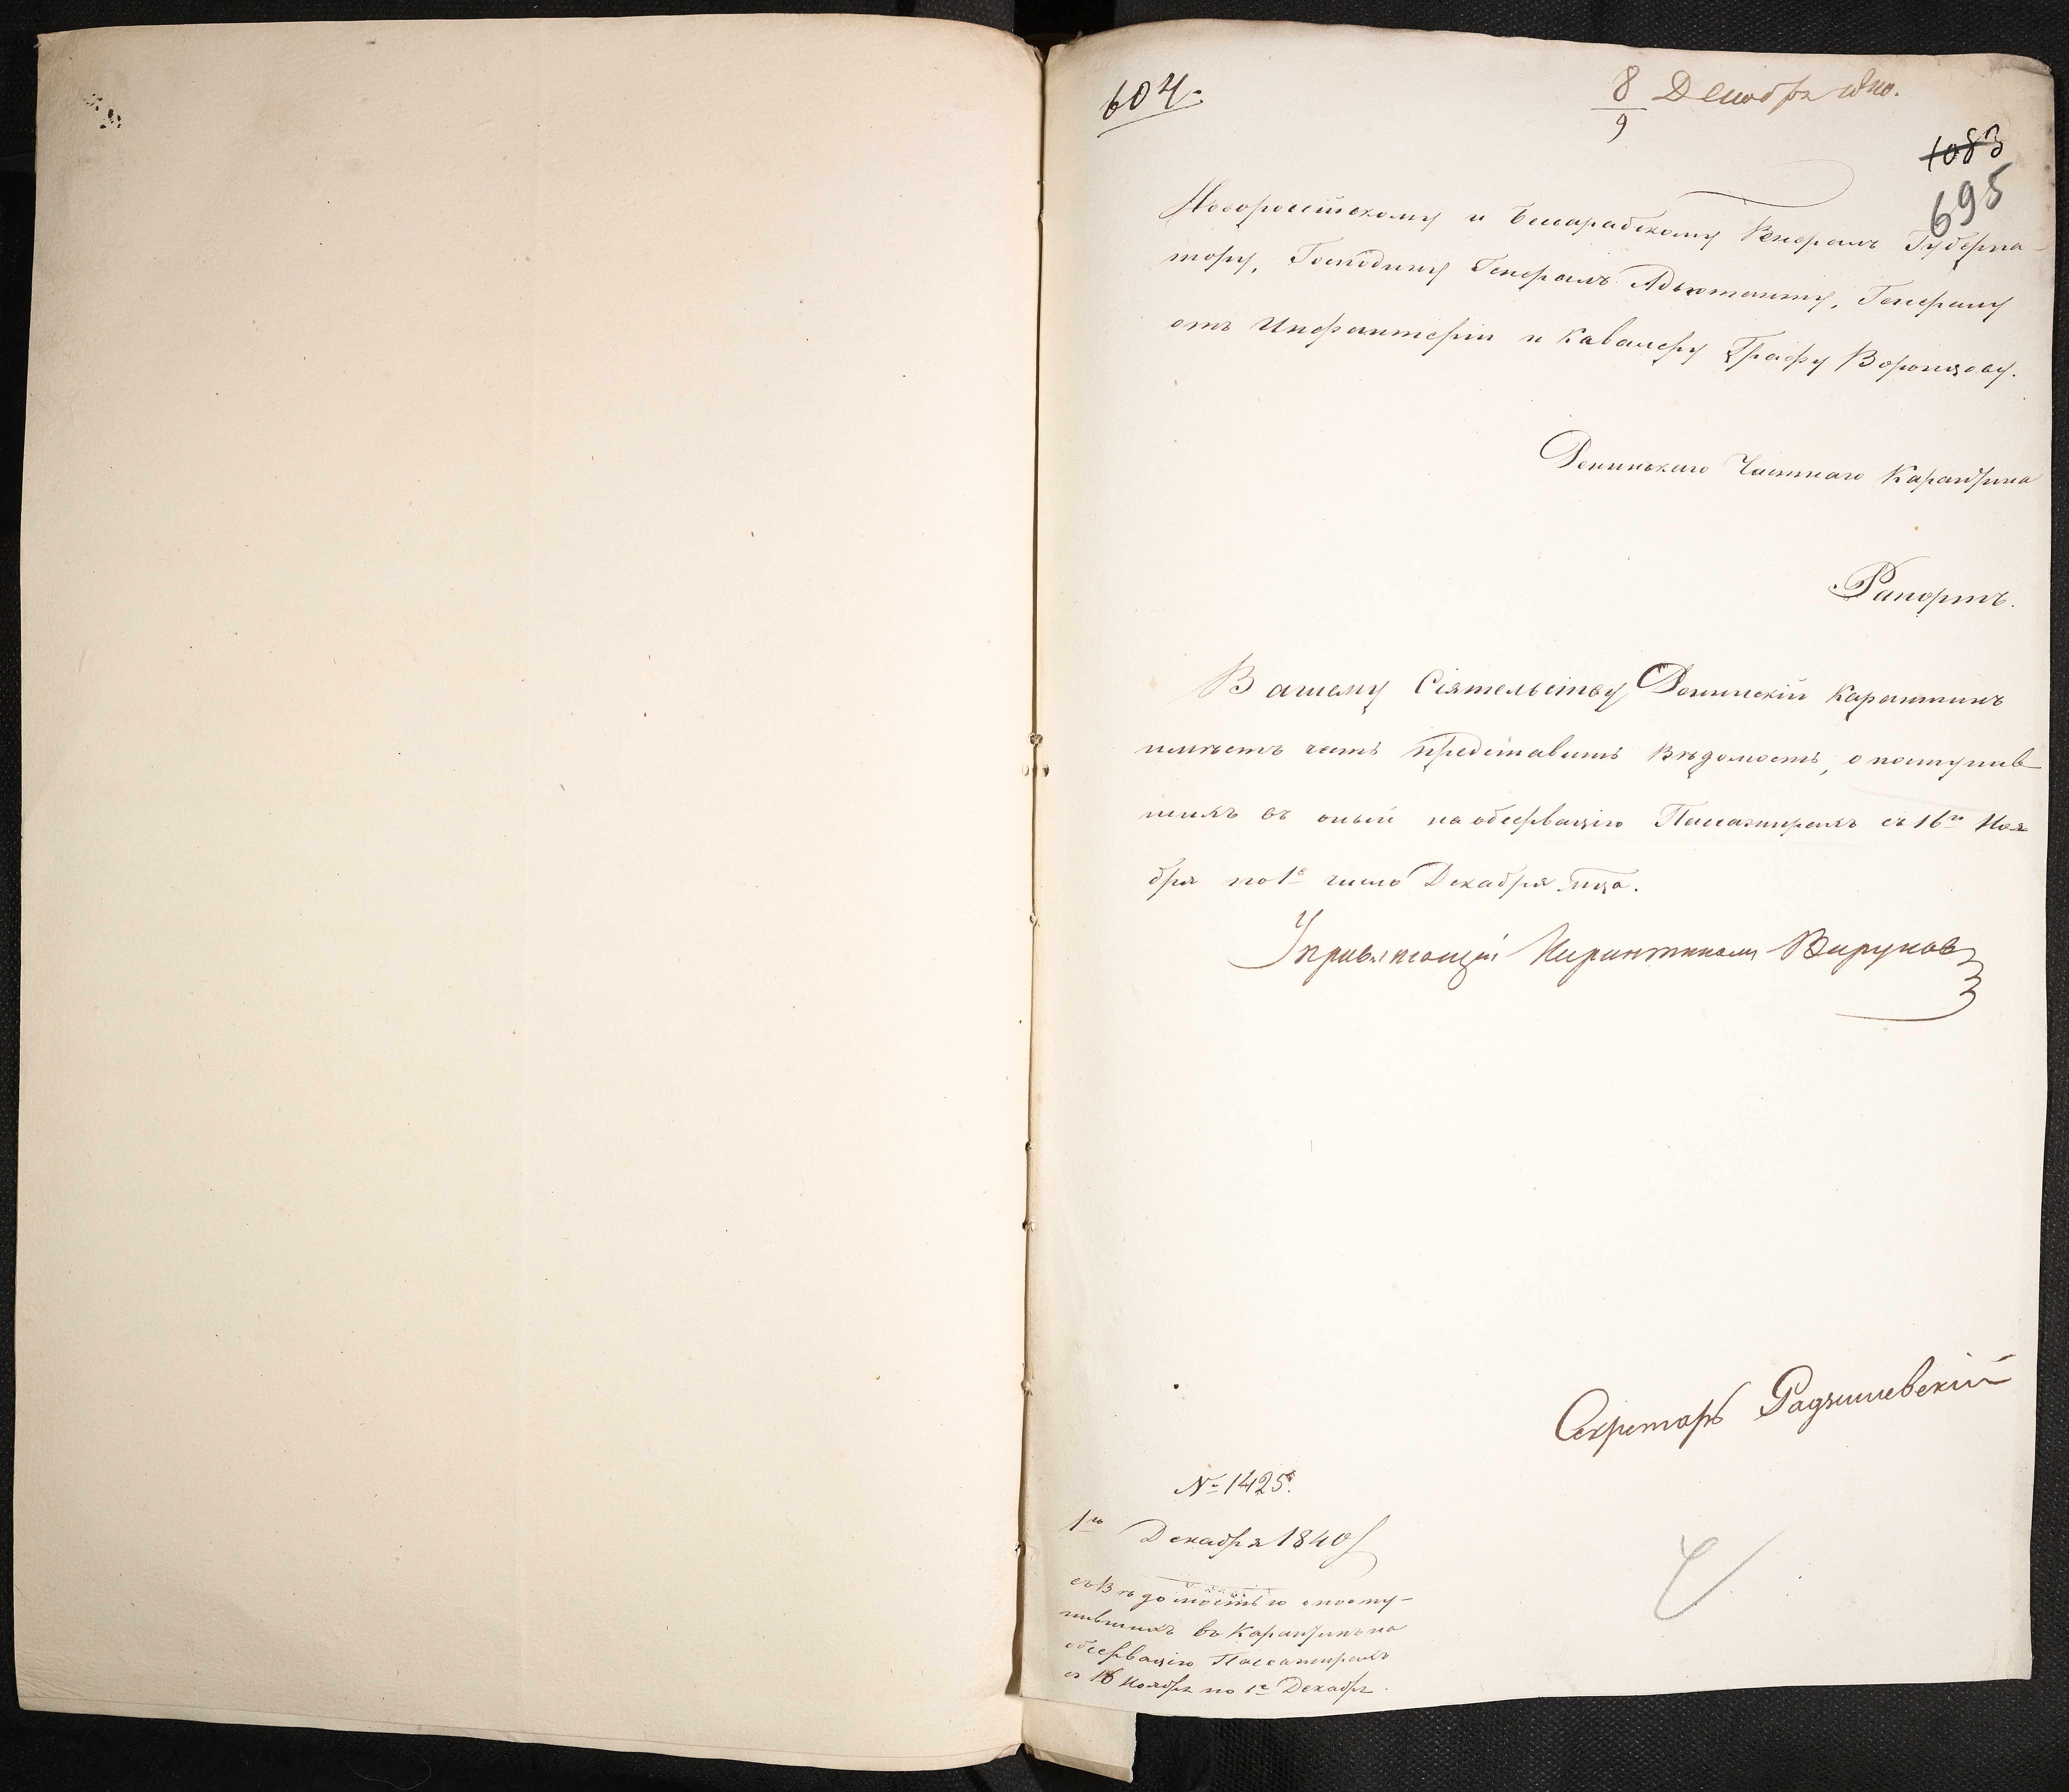 604.
8/9 Декабря 1840.
1083
695
Новороссійскому и Бессарабскому Генералъ Губерна-
тору, Господину Генералъ Адъютанту, Генералу
отъ Инфантеріи и Кавалеру Графу Воронцову.
Ренинскаго Частнаго Карантина
Рапортъ.
Вашему Сіятельству Ренинскій Карантинъ
имѣетъ честь представить Вѣдомость, о поступив
шихъ въ оный на обсервацію Пассажирахъ съ 16го Ноя
бря по 1е число Декабря
Управляющій Карантиномъ
Секретарь Радзишевскій
№ 1425.
1го Декабря 1840
съ Вѣдомостью о посту-
пившихъ въ Карантинъ на
обсервацію Пассажирахъ
съ 16 Ноября по 1е Декабря.